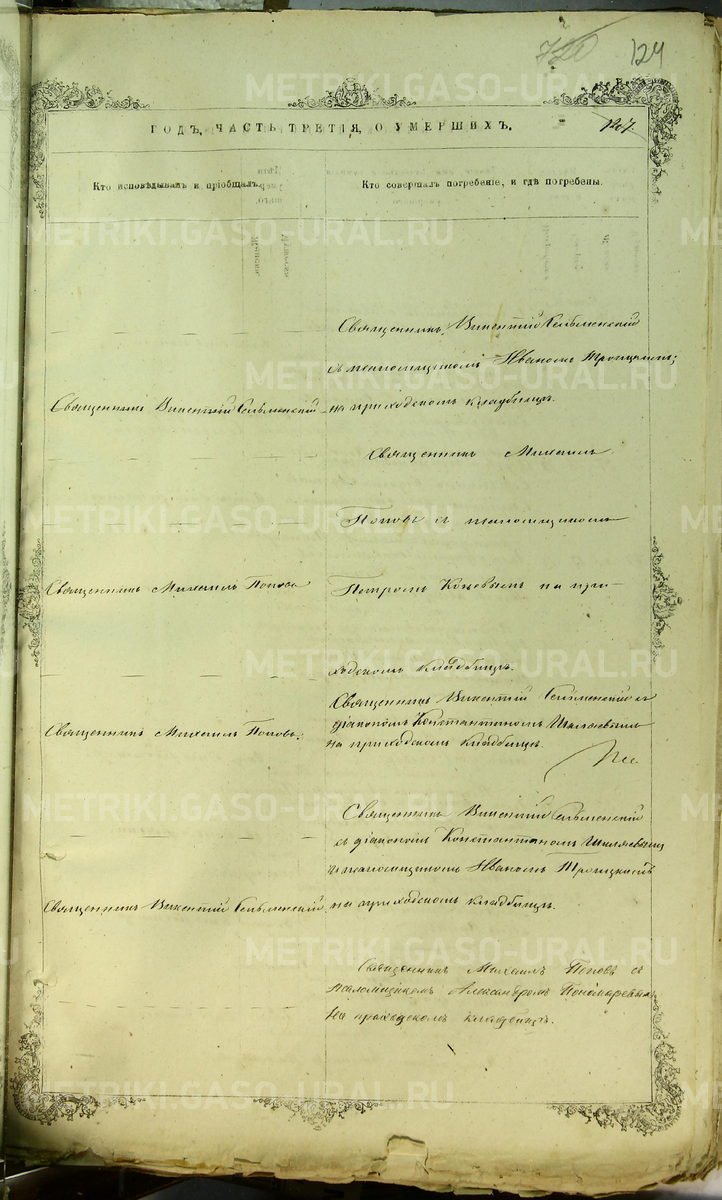 720 124
ГОДЪ, ЧАСТЬ ТРЕТІЯ, О УМЕРШИХЪ.
Кто исповѣдывалъ и пріобщалъ.
Кто совершалъ погребеніе, и гдѣ погребены.
Священникъ Викентій
съ псаломщикомъ Иваномъ Троицкимъ;
на приходскомъ кладбищѣ.
Священникъ Викентій
Священникъ Михаилъ
Поповъ съ псаломщикомъ
Петромъ Коневымъ на при-
Священникъ Михаилъ Поповъ
ходскомъ кладбищѣ.
Священникъ Викентій съ
діакономъ Константиномъ
на приходскомъ кладбищѣ.
Священникъ Михаилъ Поповъ.
Священникъ Викентій
съ діакономъ Константиномъ
и псаломщикомъ Иваномъ Троицкимъ
на приходскомъ кладбищѣ.
Священникъ Викентій
Священникъ Михаилъ Поповъ съ
псаломщикомъ Александромъ Пономаревымъ
на приходскомъ кладбищѣ.
METRIKI.GASO-URAL.RU